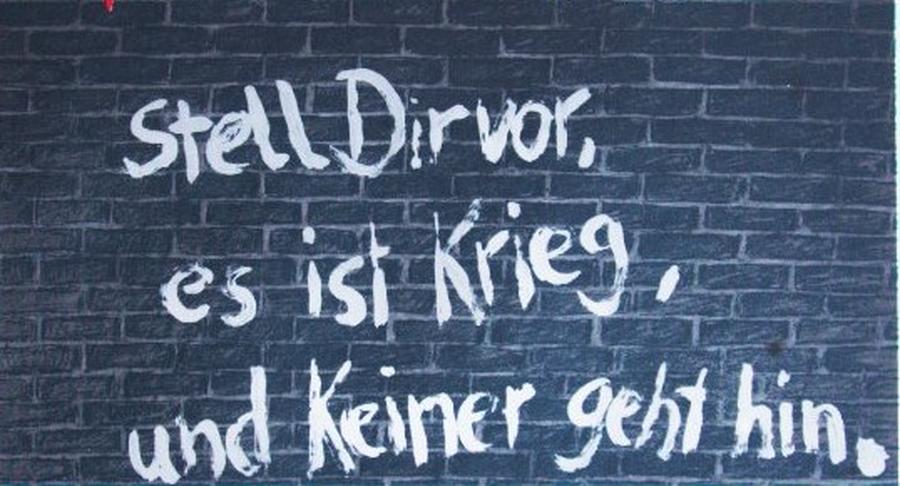 Stell Dir vor,
es ist Krieg,
und Keiner geht hin.